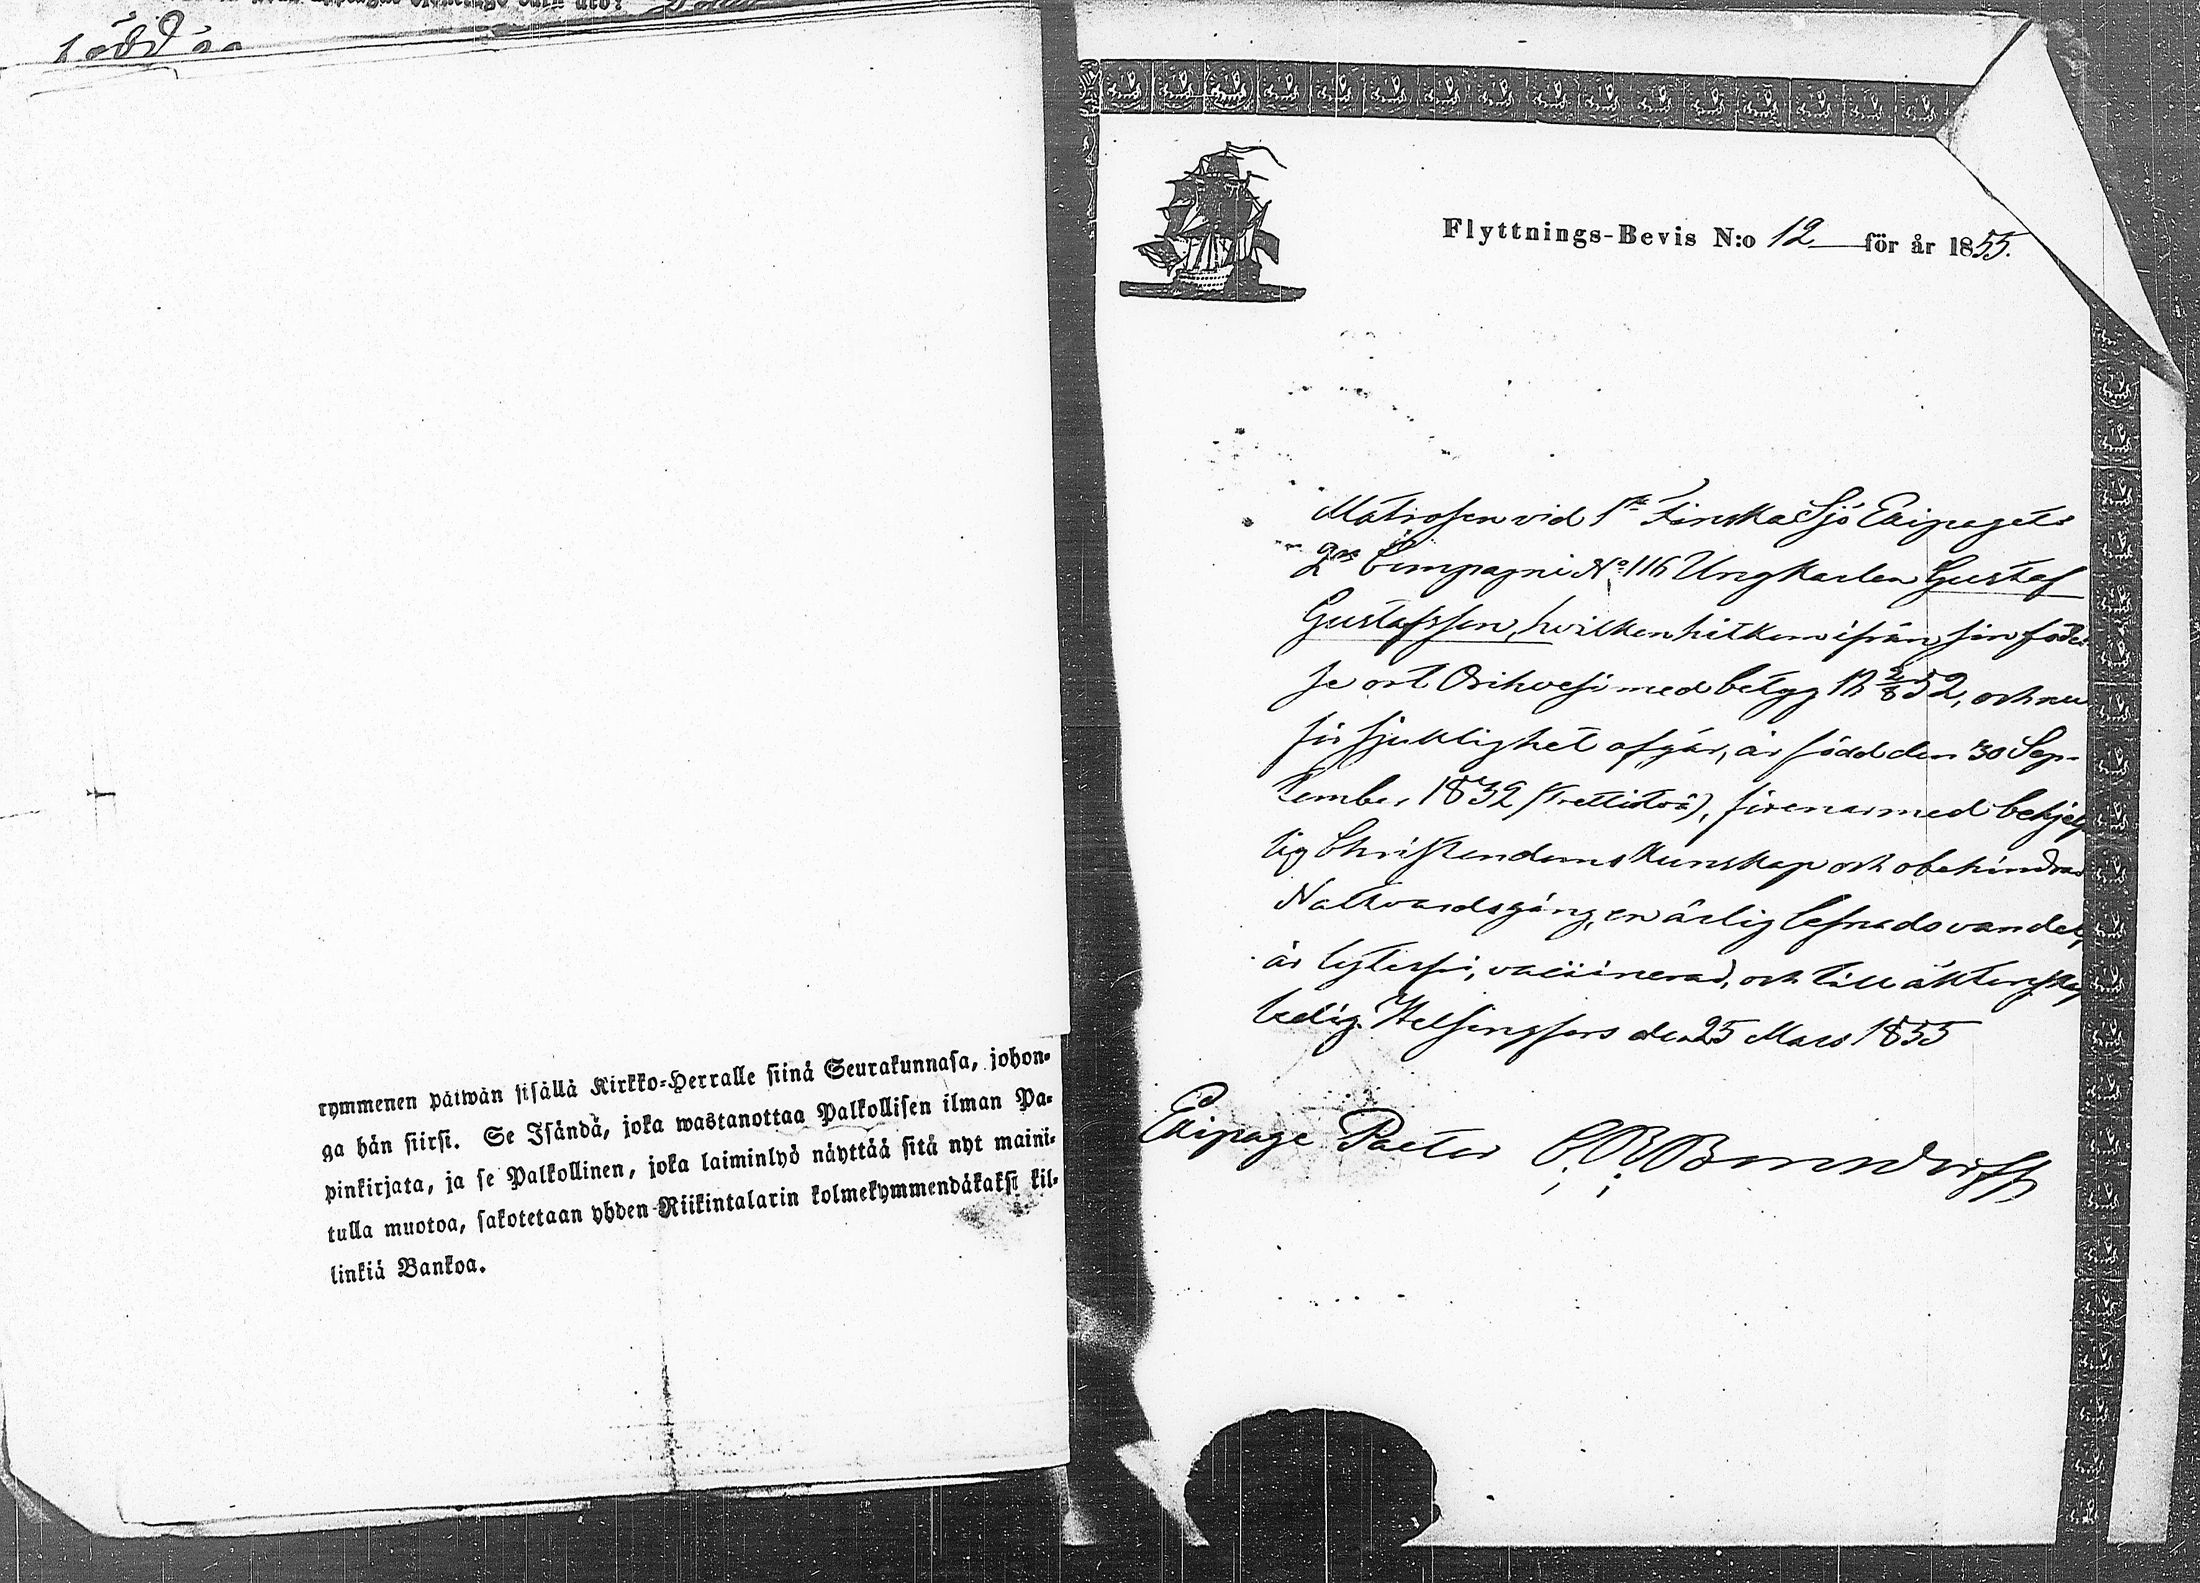 född
rymmenen päiwän sisällä Kirkko-Herralle siinä Seurakunnasa, johon-
ga hän siirsi. Se Isändä, joka wastanottaa Palkollisen ilman Pa-
pinkirjata, ja se Palkollinen, joka laiminlyö näyttää sitä nyt maini-
tulla muotoa, sakotetaan yhden Riikintalarin kolmekymmendäkaksi kil-
linkiä Bankoa.
Flyttnings-Bevis N:o 12 för år 1855.
Matrosen vid 1sta Finska Sjö Ekipagets
2dra Compagni No 116 Ungkarlen Gustaf
Gustafsson, hvilken hitkom ifrån sin födel
se ort Orihvesi med betyg 18 2/8 52, och nu
för sjuklighet afgår, är född den 30 Sep-
tember 1832 (trettiotvå), förenar med behjelp
lig Christendomskunskap och obehindrad
Nattvardsgång, en ärlig lefnadsvandel,
är lytesfri, vaccinerad, och till äktenskap
ledig. Helsingfors den 25 Mars 1855
Ekipage Pastor